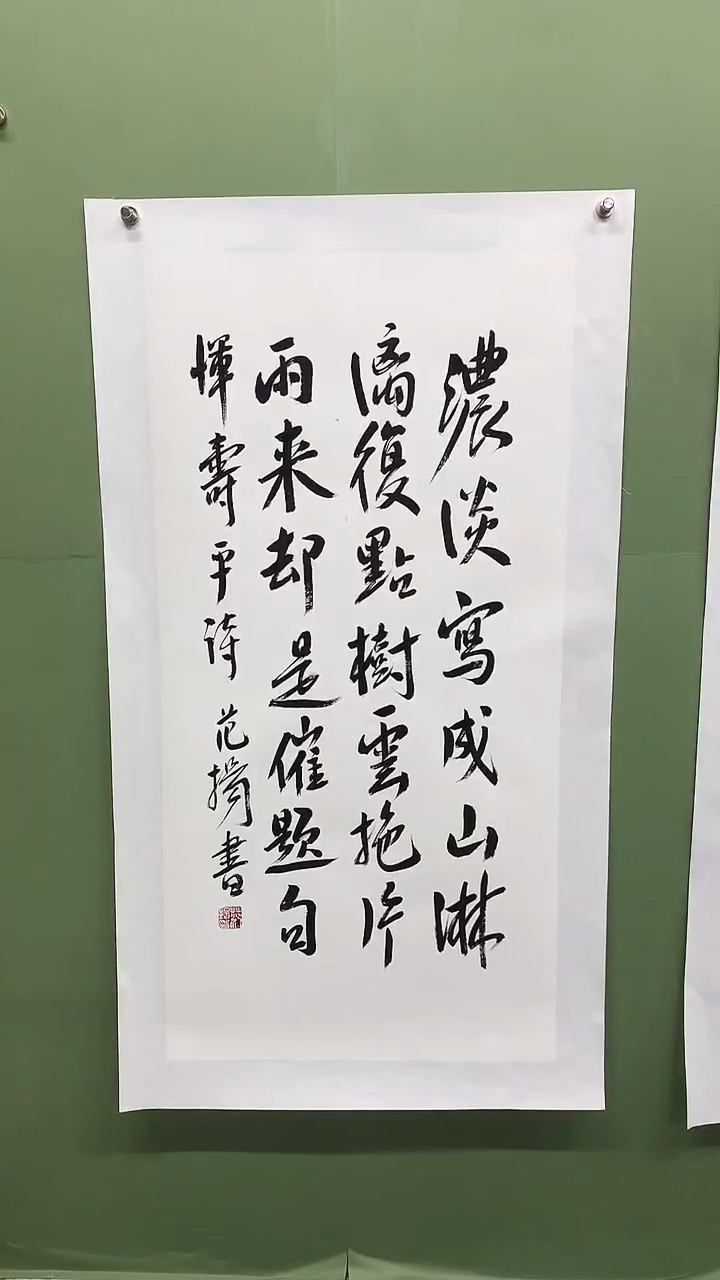 濃淡寫成山淋
漓復點樹雲拖片
雨来却是催題句
惲壽平詩 范撝書